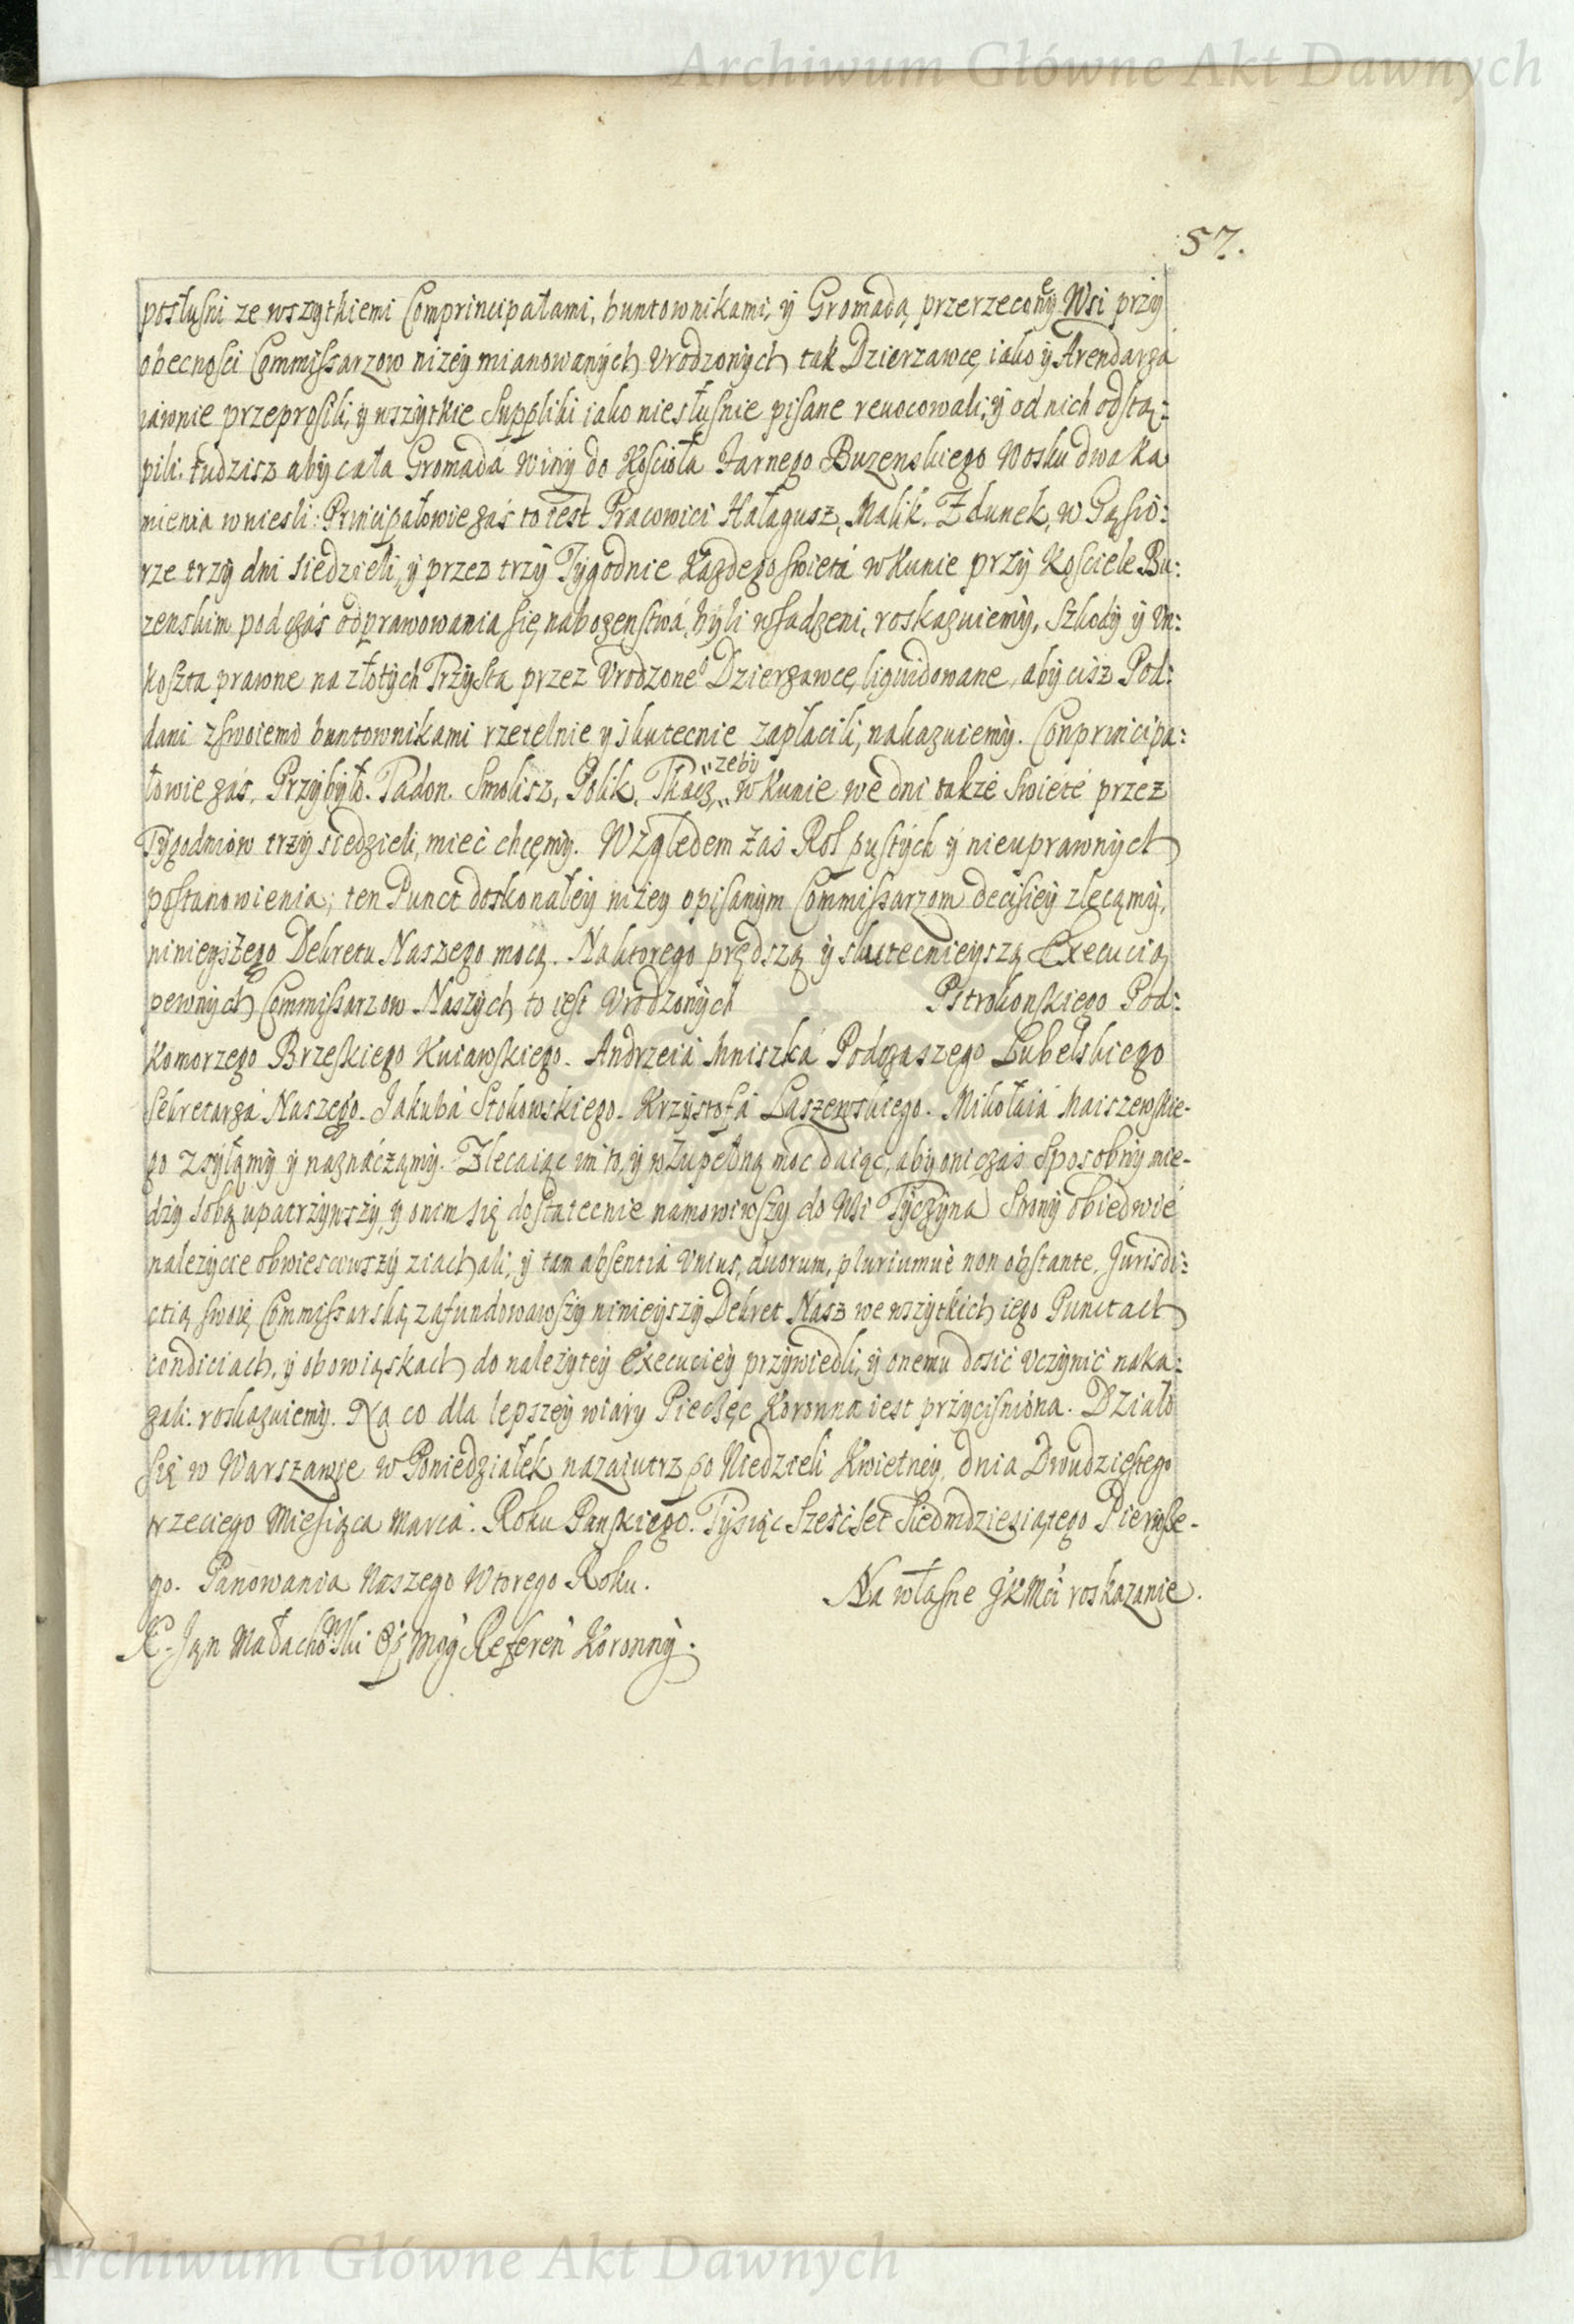 Archiwum Główne Akt Dawnych
57.
posłuſni ze wszytkiemi Comprincipałami, buntownikami, ÿ Gromadą przerzeconeÿ Wsi przÿ
obecnoſci Commiſsarzow nizeÿ mianowanÿch Vrodzonÿch tak Dzierzawcę iako ÿ Arendarza
iawnie przeproſili, ÿ wszÿtkie Suppliki iako niesłuſnie piſane revocowali, ÿ od nich odſtą:
pili. tudzisz abÿ cała Gromada winÿ do Koſcioła Farnego Buzenskiego Wosku dwa ka
mienia wniesli: Principałowie zaś to iest Pracowici Hałagusz, Malik, Zdunek, w Gąſio:
rze trzÿ dni siedzieli, ÿ przez trzÿ Tÿgodnie Kazdego ſwieta w Kunie przÿ Koſciele Bu:
zenskim podczás odprawowania ſię nabozenſtwá, bÿli wſadzeni, roskazuiemÿ, Szkodÿ ÿ Vn:
koſzta prawne na złotÿch Trzÿsta przez Vrodzoneº Dzierzawcę liquidowane, abÿ cisz Pod:
dani zſwoiemi buntownikami rzetelnie ÿ skutecnie zapłacili, nakazuiemÿ. Conprincipa:
łowie zás, Przÿbÿło. Tadon. Smolisz, Polik, Tkacz, zebÿ w Kunie we dni także ſwieté przez
Tÿgodniow trzÿ siedzieli, mieć chcęmÿ. Względem zaś Rol puſtÿch ÿ nieuprawnÿch
poſtanowienia, ten Punct doskonałeÿ nizeÿ opiſanÿm Commiſsarzom deciſieÿ zlecąmÿ,
ninieÿszego Dekretu Naszego mocą. Na ktorego prędszą ÿ skutecnieÿszą Execucią
pewnÿch Commiſsarzow Naszÿch to iest Vrodzonÿch Pstrokonſkiego Pod:
Komorzego Brzeſkiego Kuiawſkiego. Andrzeiá Mniszká Podczaszego Lubelskiego
Sekretarzá Naszego. Jakubá Stokowskiego. Krzÿstofá Laszewskiego. Mikołaiá Maiszewſkie-
go zsÿłąmÿ ÿ naznáćząmÿ. Zlecaiąc im to, ÿ w Zupełną moc daiąc, abÿ oni czas Sposobnÿ mie-
dzÿ sobą upatrzÿwszÿ, ÿ onim się doſtatecnie namowiwſzÿ do Wsi Tÿczÿna Stronÿ obiedwié
nalezÿcie obwiescıwszÿ ziachali, ÿ tam absentiá Vnius, duorum, pluriumué non obstante, Jurisdi:
ctią ſwoię Commiſsarską zafundowawſzÿ ninieÿszÿ Dekret Nasz we wszÿtkich iego Punctach
condiciach, ÿ obowiąskach do nalezÿteÿ Execucieÿ przÿwiedli, ÿ onemu dosić Vczÿnić naka:
zali. roskazuiemÿ. Na co dla lepszeÿ wiárÿ Pieczęć Koronna iest przÿciſnióna. Działo
ſię w Warszawie w Poniedziałek nazaiutrz po Niedzieli Kwietneÿ, dnia Dwudzieſtego
trzeciego Mieſiąca Marca. Roku Panſkiego. Tÿsiąc Sześćſet Siedmdzieſiątego Pierwſze-
go. Panowania Naszego Wtorego Roku.
Na właſne JKMći roskazanie.
X. Jąn Małachowski Referen Koronnÿ.
Archiwum Główne Akt Dawnych